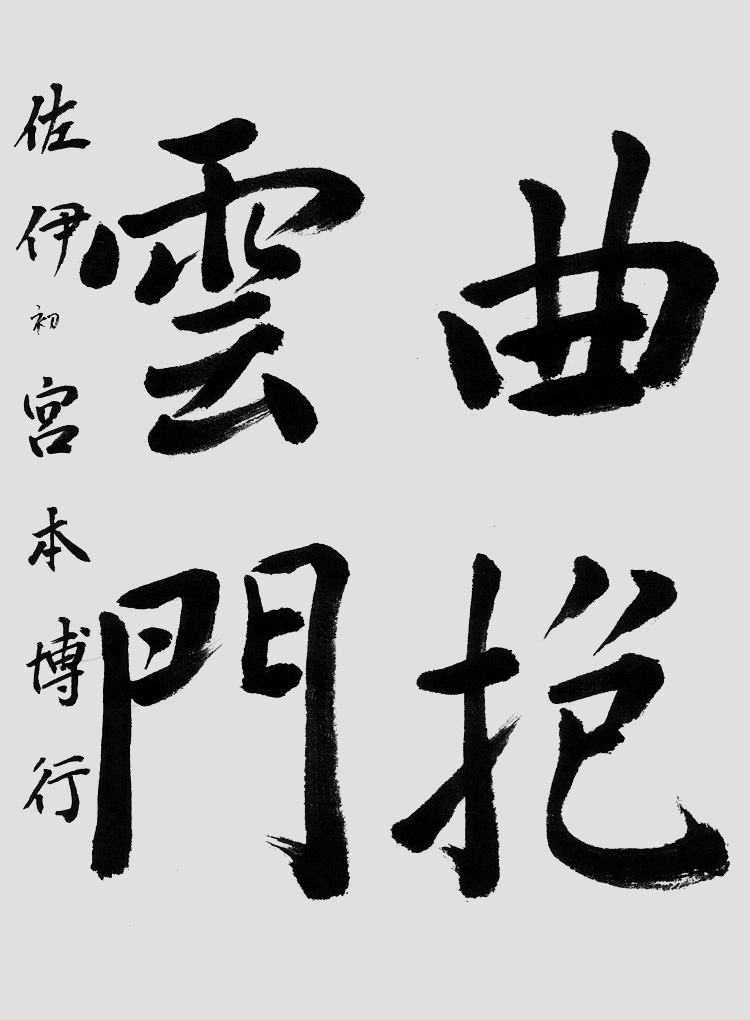 曲抱
雲門
佐伊初宮本博行